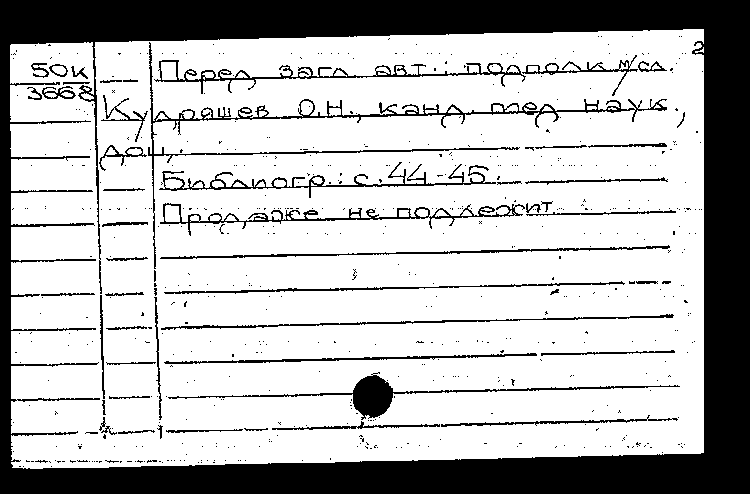 2
50к Перед загл. авт.: подполк. м/сл.
3668
Кудряшев О.Н., канд. мед. наук,
доц.
Библиогр.: с. 44-45.
Продаже не подлежит